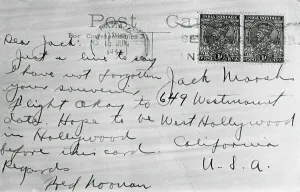 Post Ca
INDIA POSTAGE INDIA POSTAGE
Dear Jack:
Just a line to say
I have not forgotten
your souvenir.
Flight Okay to
date. Hope to be
in Hollywood
before this card.
Regards
Fred Noonan
Jack Marahs
649 Westmount
West Hollywood
California
U.S.A.